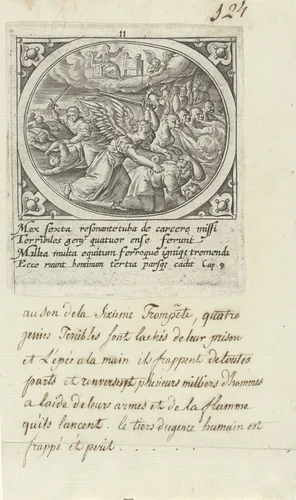 124
11
Mox sexta resonante tuba de carcere missi
Terribiles genÿ quatuor ense feriunt
Millea multa equitum ferroque igniqz tremendi
Ecce ruunt hominum tertia parsqz cadit Cap. 9
au son de la Sixieme Trompẽte, quatre
genies Terribles sont lachés de leur prison
et L'épée a la main ils frappent de toutes
parts et renversent plusieurs milliers d'hommes
a l'aide de leurs armes et de la flamme
qu'ils lancent. le tiers du genre humain est
frappé et perit . . . . .